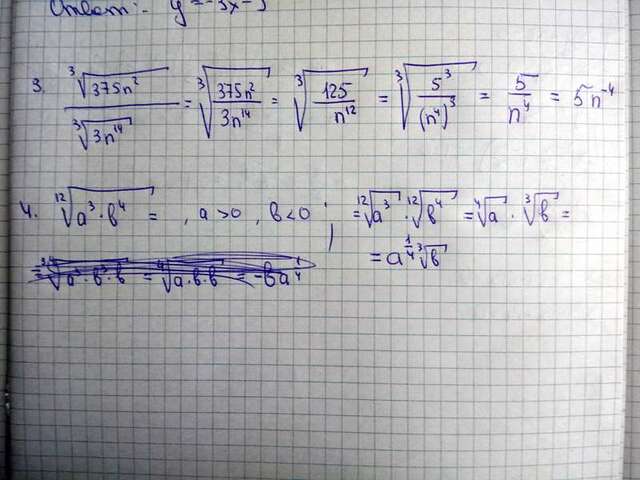 Ответ: y = -3x - 5
3. ∛(375n²) / ∛(3n¹⁴) = ∛(375n² / 3n¹⁴) = ∛(125 / n¹²) = ∛(5³ / (n⁴)³) = 5 / n⁴ = 5n⁻⁴
4. ¹²√(a³·b⁴) = , a>0 , b<0 ; = ¹²√(a³) · ¹²√(b⁴) = ⁴√a · ³√b =
= a^(1/4) ³√b